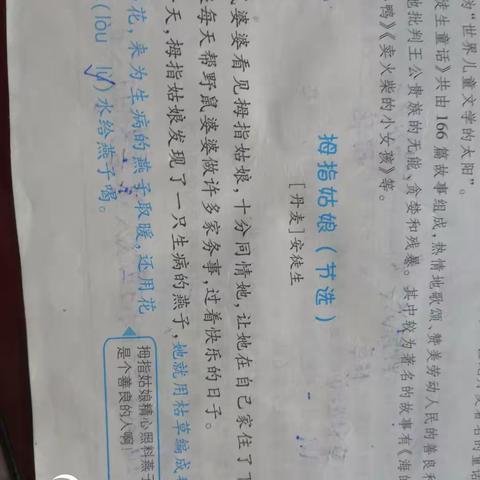 为“世界儿童文学的太阳”。
徒生童话》共由 166 篇故事组成，热情地歌颂、赞美劳动人民的善良和
地批判王公贵族的无能、贪婪和残暴。其中较为著名的故事有《海的
鸭》《卖火柴的小女孩》等。
拇指姑娘（节选）
[丹麦]安徒生
婆婆看见拇指姑娘，十分同情她，让她在自己家住了下
每天帮野鼠婆婆做许多家务事，过着快乐的日子。
天，拇指姑娘发现了一只生病的燕子，她就用枯草编成
花，来为生病的燕子取暖，还用花
(lòu lù)水给燕子喝。
拇指姑娘精心照料燕子
是个善良的人啊！